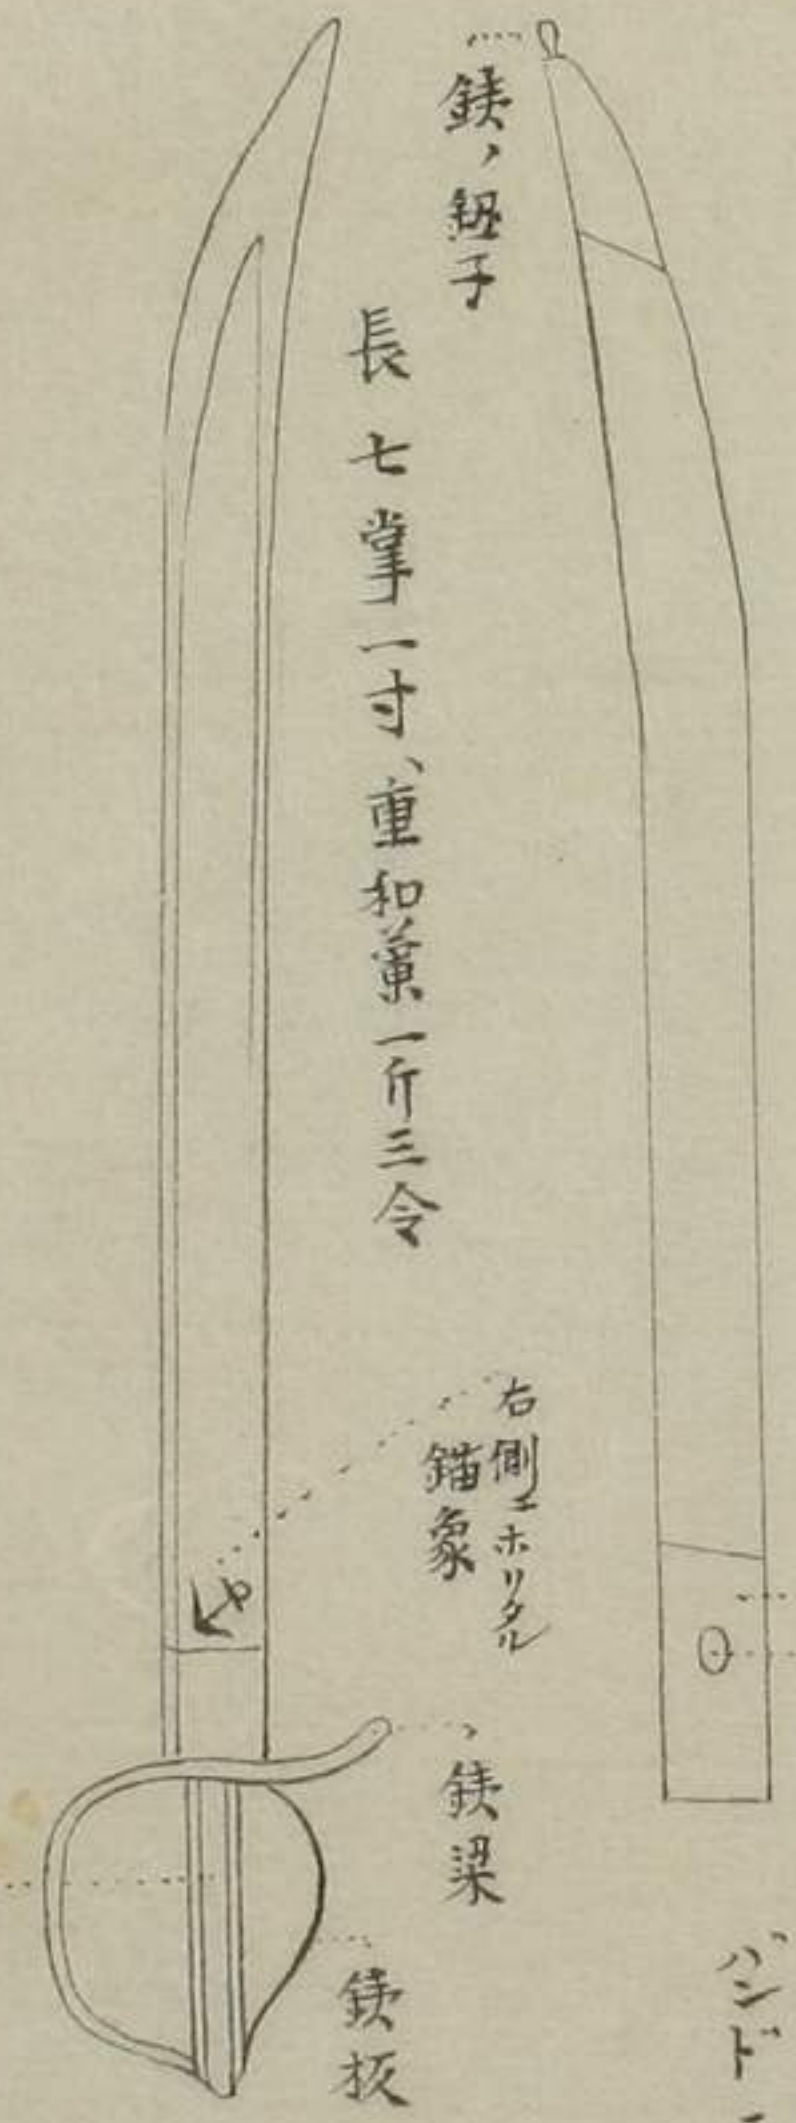 鉄ノ鈕子
長七掌一寸、重和蘭一斤三令
右側ニホリタル
錨象
鉄梁
鉄板
バンド